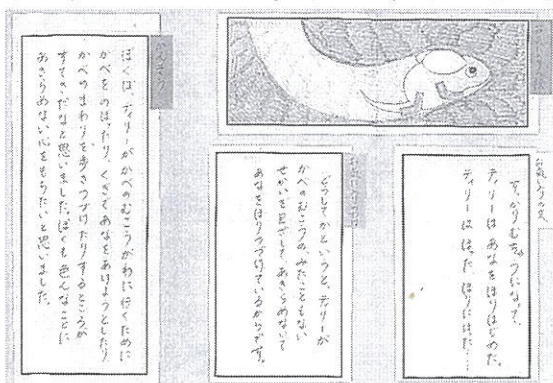 お気にいりの文
すっかりむちゅうになって、
ティリーはあなをほりはじめた。
ティリーは ほった、ほりにほった…
どうしてかというと、ティリーが
かべのむこうのみたこともない
せかいを目ざして、あきらめないで
あなをほりつづけているからです。
かんそう
ぼくは、ティリーがかべのむこうがわに行くために
かべをのぼったり、くぎであなをあけようとしたり
かべのまわりを歩きつづけたりするところが
すてきだなと思いました。ぼくも色んなことに
あきらめない心をもちたいと思いました。